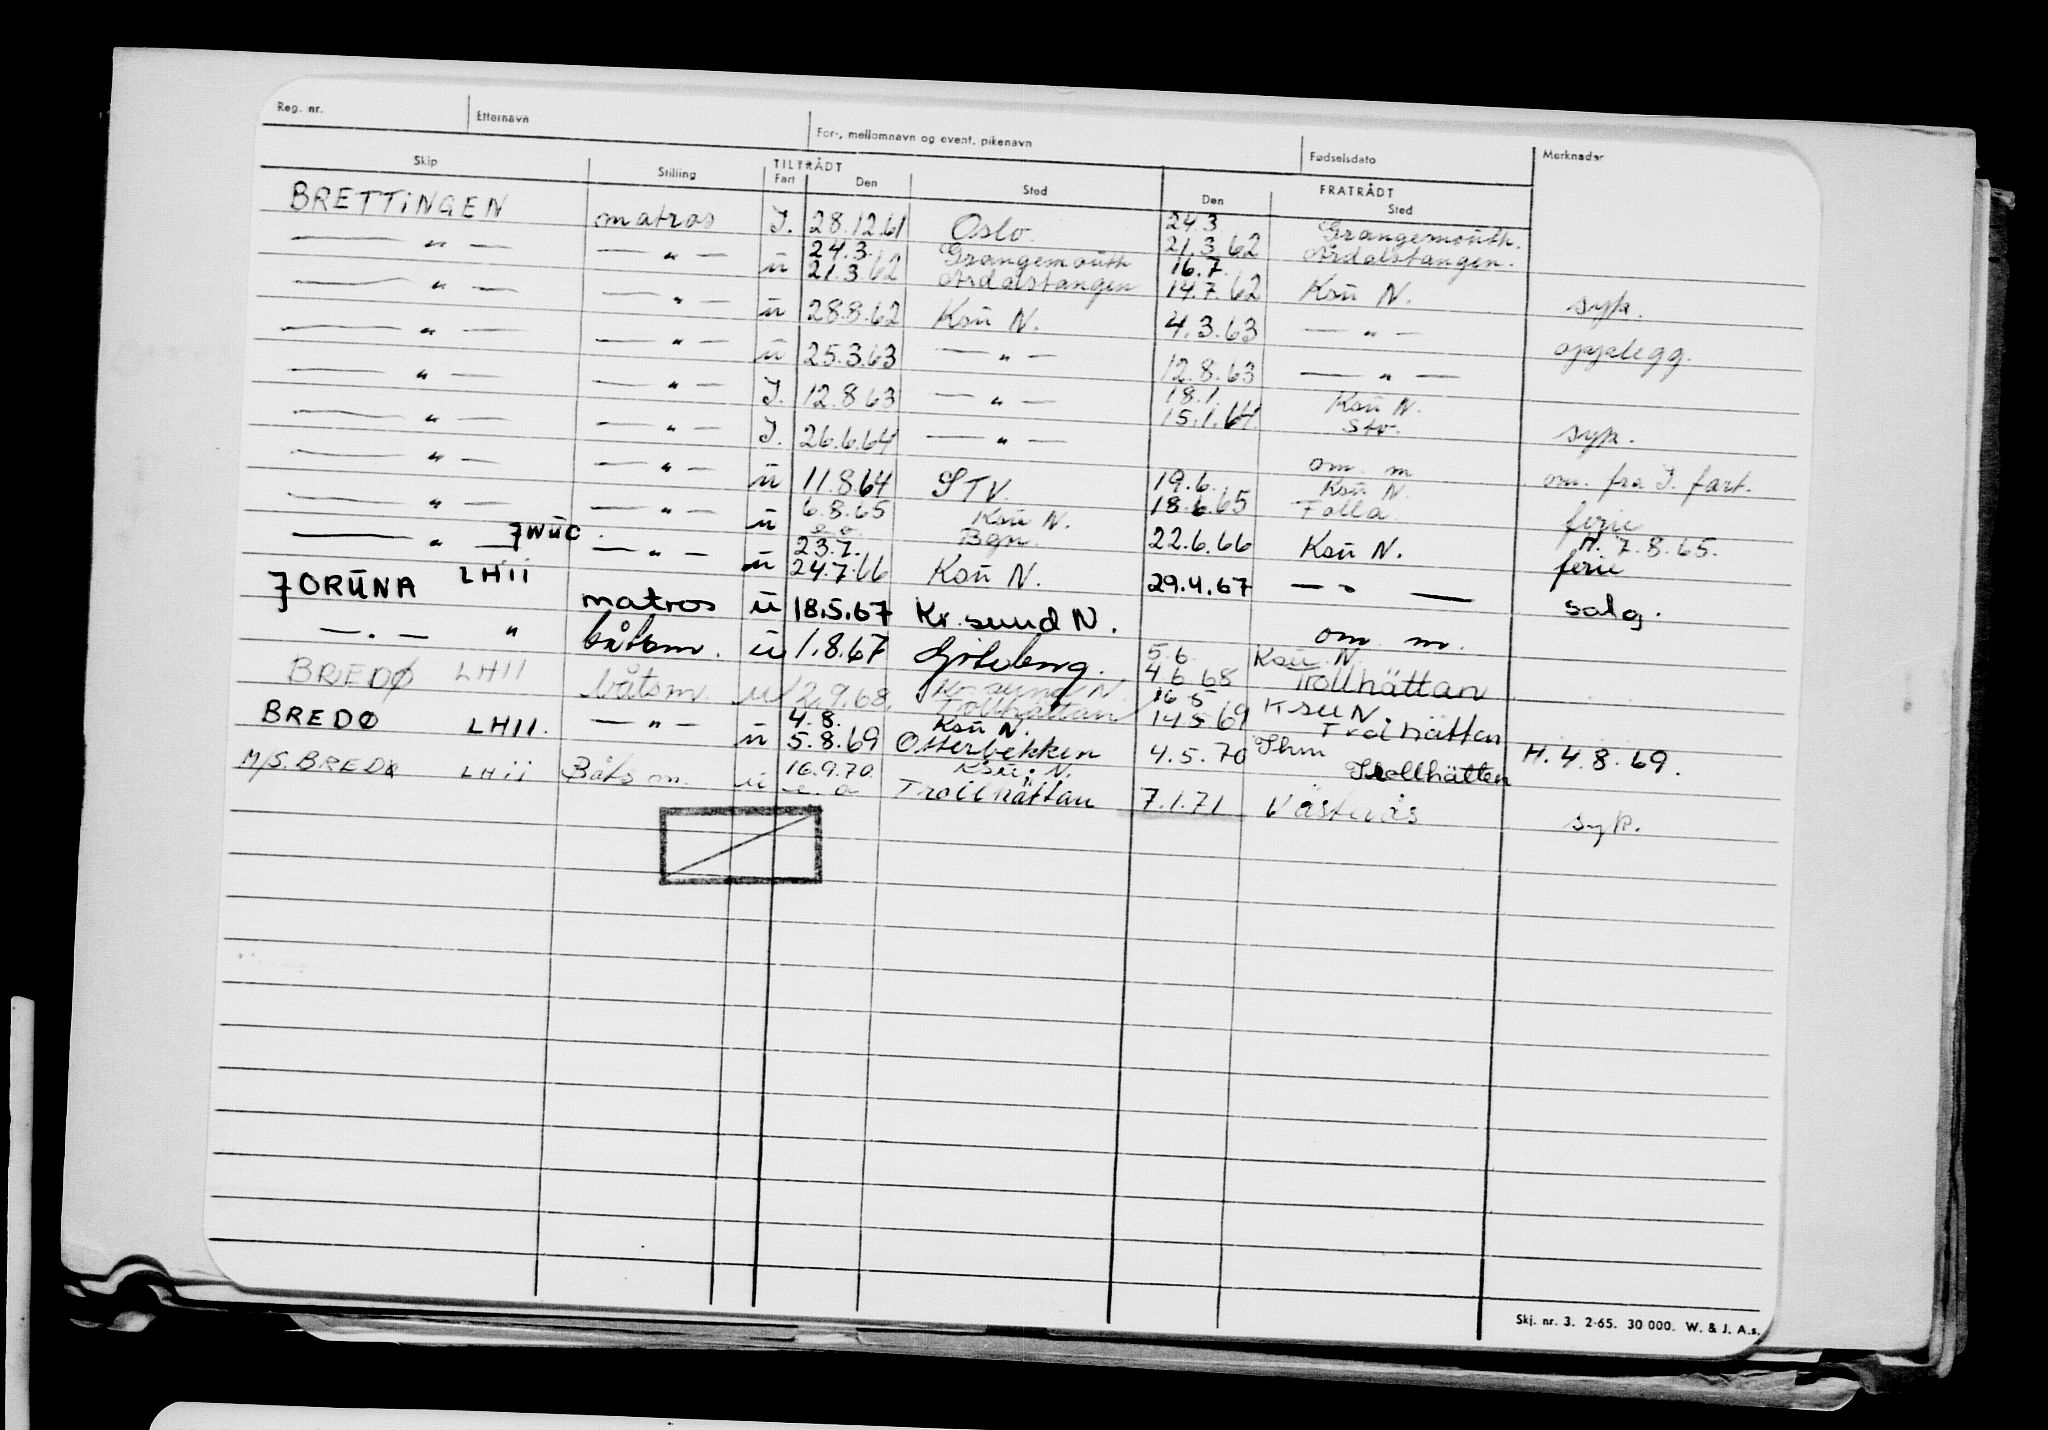 Reg. nr. Etternavn For-, mellomnavn og event. pikenavn Fødselsdato Merknader
Skip Stilling TILTRÅDT FRATRÅDT
Fart Den Sted Den Sted
BRETTINGEN matros I. 28.12.61 Oslo. 24.3 21.3.62 Grangemouth. Årdalstangen.
— " — — " — ü 24.3. 21.3.62 Grangemouth Årdalstangen 16.7. 14.7.62 Ksü N. syk.
— " — — " — ü 28.8.62 Ksü N. 4.3.63 — " — opplegg.
— " — — " — ü 25.3.63 — " — 12.8.63 — " —
— " — — " — I. 12.8.63 — " — 18.1. 15.1.64 Ksü N. Stv. syk.
— " — — " — I. 26.6.64 — " — om. m om. fra I. fart.
— " — — " — ü 11.8.64 STV. 19.6. 18.6.65 Ksü N. Folla. ferie
— " — — " — ü 6.8.65 Ksü N. Bgn. 22.6.66 Ksü N. H. 7.8.65. ferie
— " — JWUC — " — ü 23.7. 24.7.66 Ksü N. 29.4.67 — " — salg.
JORUNA LHII matros ü 18.5.67 Kr. sund N. om m.
— . — " båtsm. ü 1.8.67 Göteborg. 5.6. 4.6.68 Ksü N. Trollhättan
BREDØ LHII båtsm. ü 12.9.68 Kr. sund N. Trollhättan 16.5 14.5.69 Ksü N. Trollhättan
BREDØ LHII. — " — ü 4.8. 5.8.69 Ksü N. Otterbekken 4.5.70 Thm Trollhätten H. 4.8.69.
M/S. BREDØ LHii Båtsm. ü 16.9.70. Ksü. N. Trollhättan 7.1.71 Västerås syk.
Skj. nr. 3. 2-65. 30 000. W. & J. A.s.